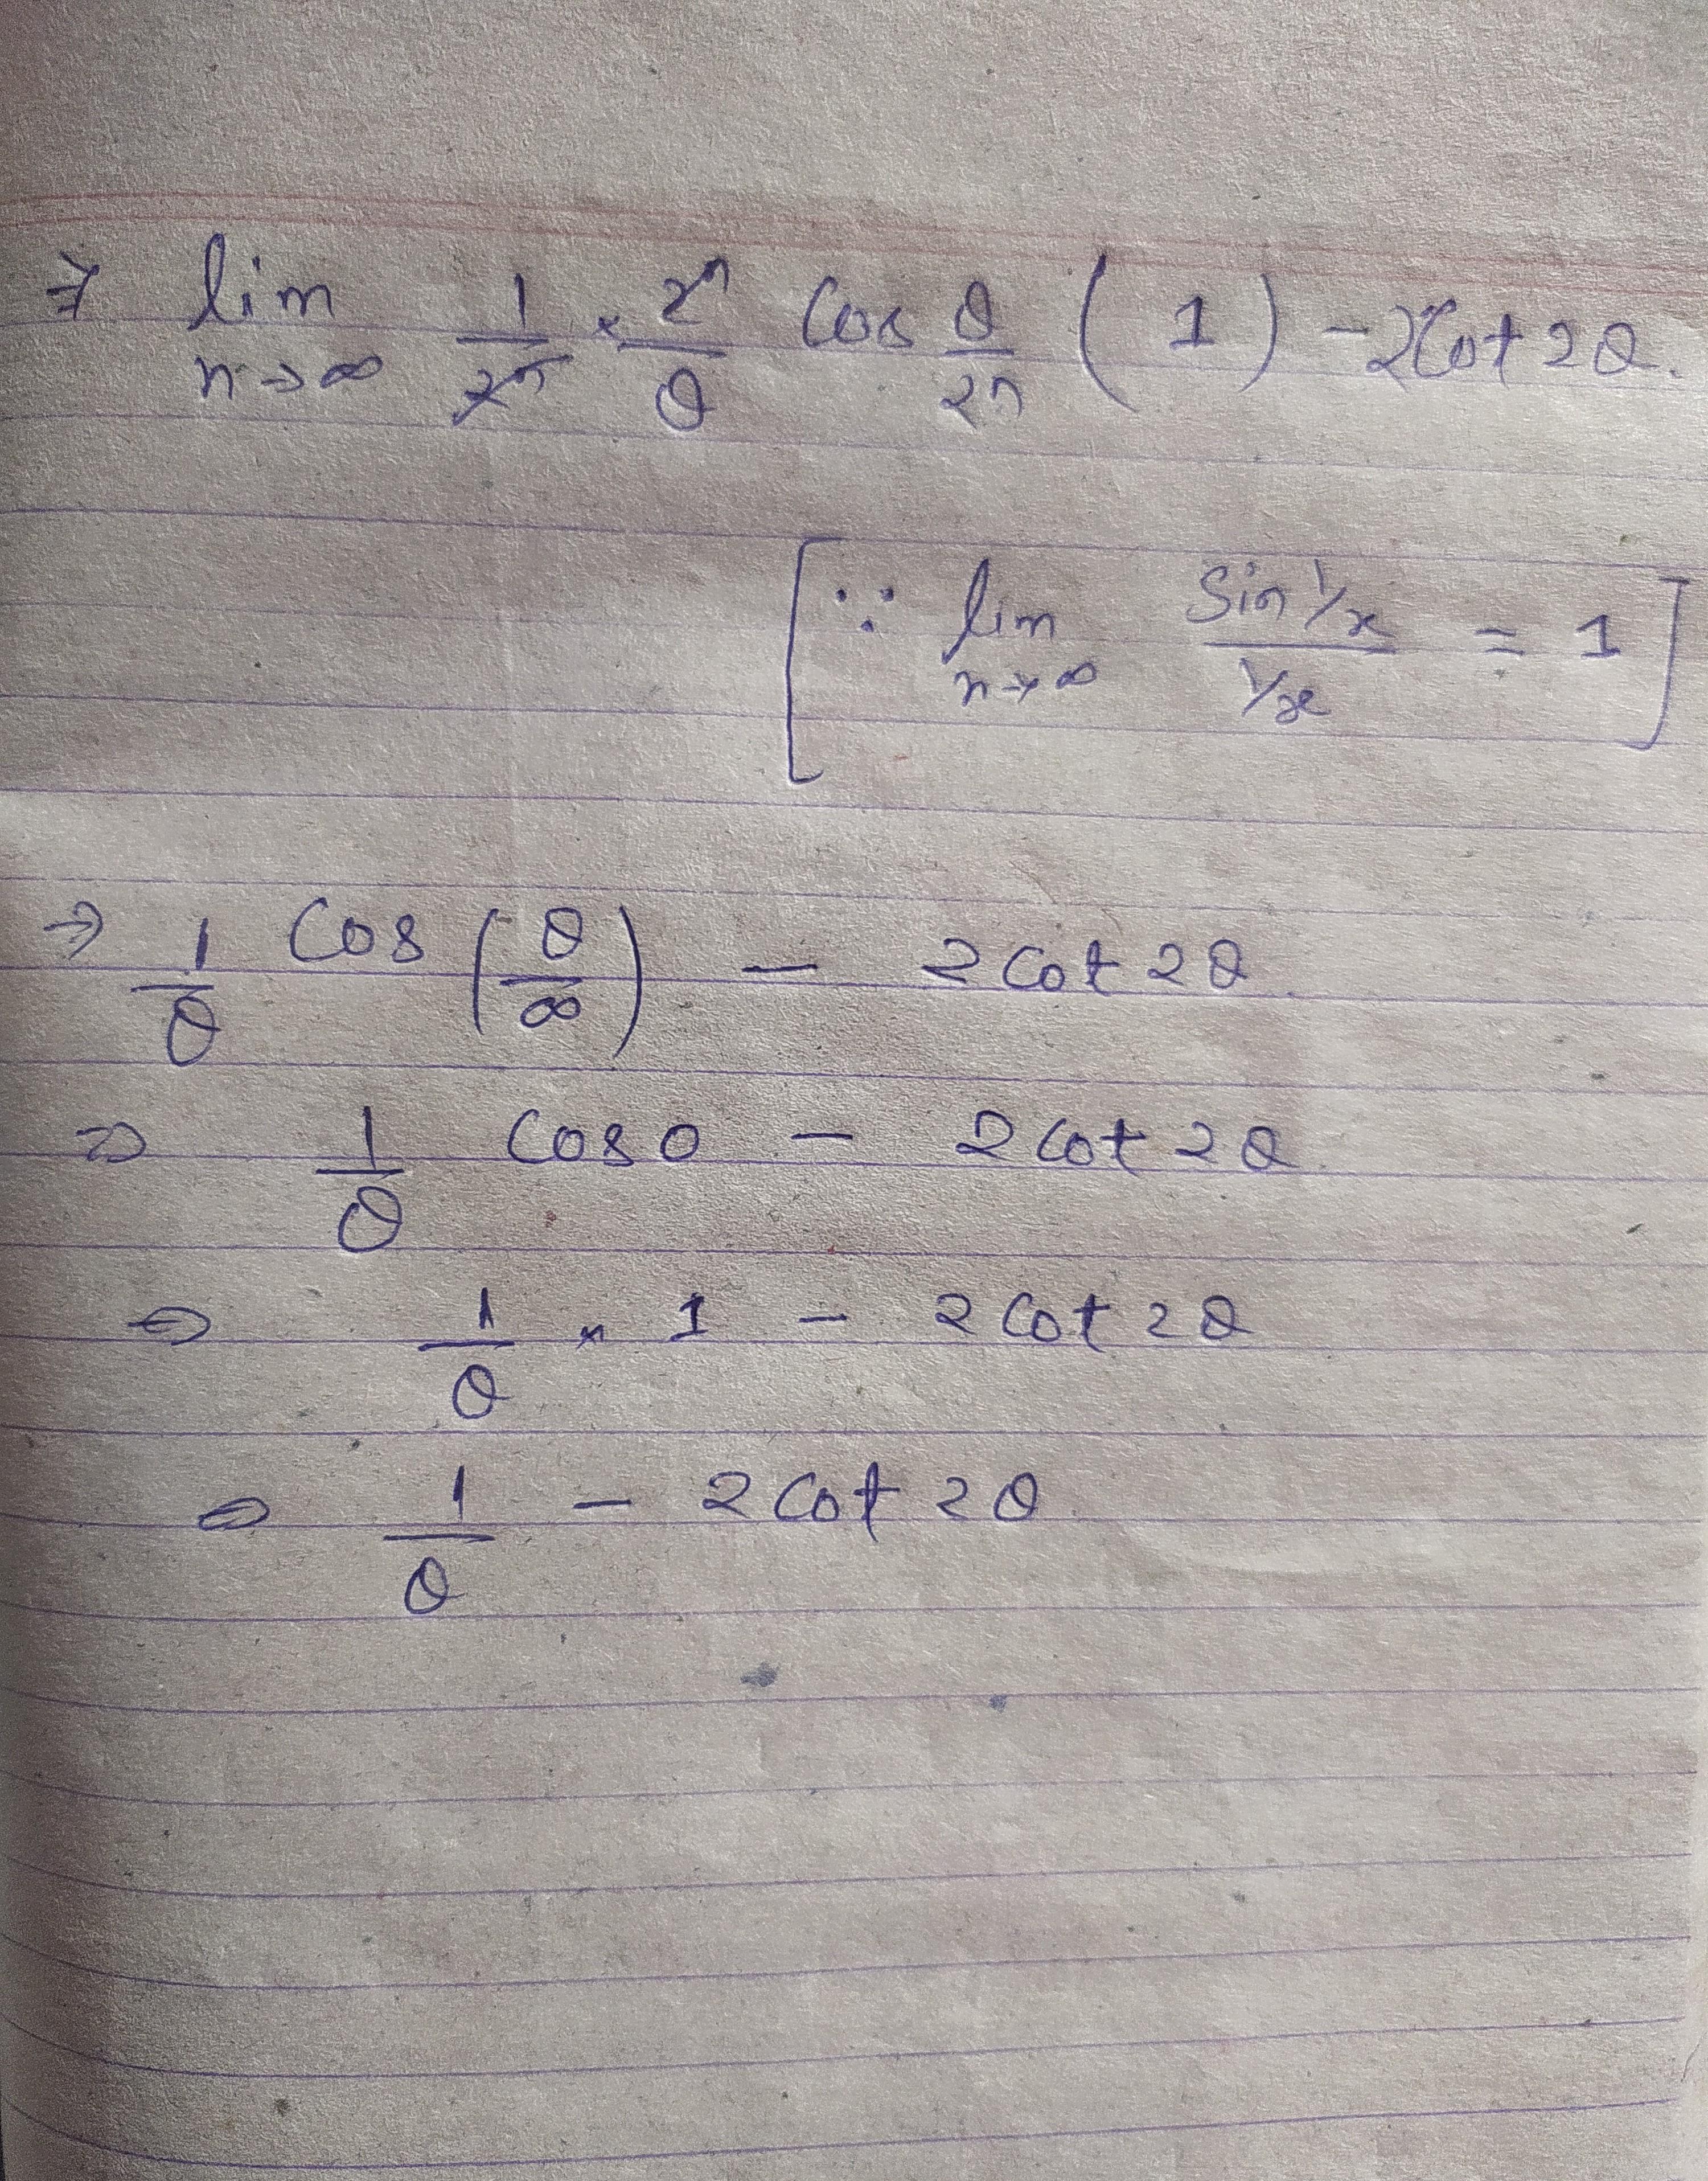 ⇒ lim n→∞ 1/2ⁿ × 2ⁿ/θ Cos θ/2ⁿ ( 1 ) - 2Cot 2θ.
[ ∵ lim n→∞ Sin 1/x / 1/x = 1 ]
⇒ 1/θ Cos (θ/∞) - 2 Cot 2θ.
⇒ 1/θ Cos 0 - 2 Cot 2θ.
⇒ 1/θ × 1 - 2 Cot 2θ
⇒ 1/θ - 2 Cot 2θ.